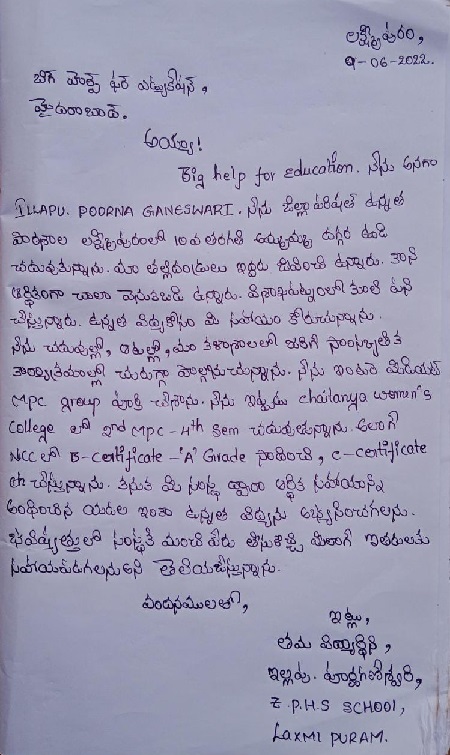 లక్ష్మీపురం,
9-06-2022.
బిగ్ హెల్ప్ ఫర్ ఎడ్యుకేషన్,
హైదరాబాద్.
అయ్యా!
Big help for education. నేను అనగా
ILLAPU. POORNA GANESWARI. నేను జిల్లా పరిషత్ ఉన్నత
పాఠశాల లక్ష్మీపురంలో 10వ తరగతి అమ్మమ్మ దగ్గర ఉండి
చదువుకున్నాను. మా తల్లిదండ్రులు ఇద్దరు జీవించి ఉన్నారు. కానీ
ఆర్థికంగా చాలా వెనుకబడి ఉన్నారు. విశాఖపట్నంలో కూలి పని
చేస్తున్నారు. ఉన్నత విద్యకోసం మీ సహాయం కోరుచున్నాను.
నేను చదువుల్లో, ఆటల్లో, మా కళాశాలలో జరిగే సాంస్కృతిక
కార్యక్రమాల్లో చురుగ్గా పాల్గొనుచున్నాను. నేను ఇంటర్ మీడియట్
MPC group పూర్తి చేసాను. నేను ఇప్పుడు chaitanya women's
college లో MPC - 4th sem చదువుతున్నాను. అలాగే
NCC లో B-certificate - 'A' Grade సాధించి, c-certificate
చేస్తున్నాను. కనుక మీ సంస్థ ద్వారా ఆర్థిక సహాయాన్ని
అందించిన యెడల ఇంకా ఉన్నత విద్యను అభ్యసించగలను.
భవిష్యత్తులో సంస్థకి మంచి పేరు తీసుకొచ్చి మీలాగే ఇతరులకు
సహాయపడగలనని తెలియజేస్తున్నాను.
వందనములతో,
ఇట్లు,
తమ విద్యార్థిని,
ఇల్లపు. పూర్ణగణేశ్వరి,
Z.P.H.S SCHOOL,
LAXMI PURAM.